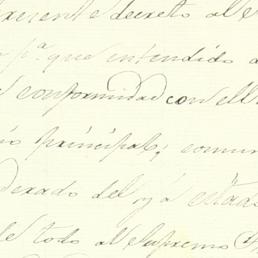 presente decreto al
pa. que entendido
conformidad con el
principal, comun
derado del, y a estado
de todo al Supremo